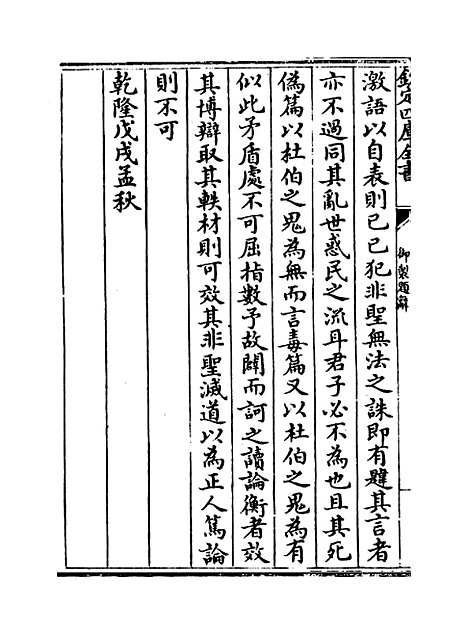 欽定四庫全書
御製題辭
激語以自表則已已犯非聖無法之誅即有韙其言者
亦不過同其亂世惑民之流耳君子必不為也且其死
偽篇以杜伯之鬼為無而言毒篇又以杜伯之鬼為有
似此矛盾處不可屈指數予故闢而訶之讀論衡者效
其博辯取其軼材則可效其非聖滅道以為正人篤論
則不可
乾隆戊戌孟秋